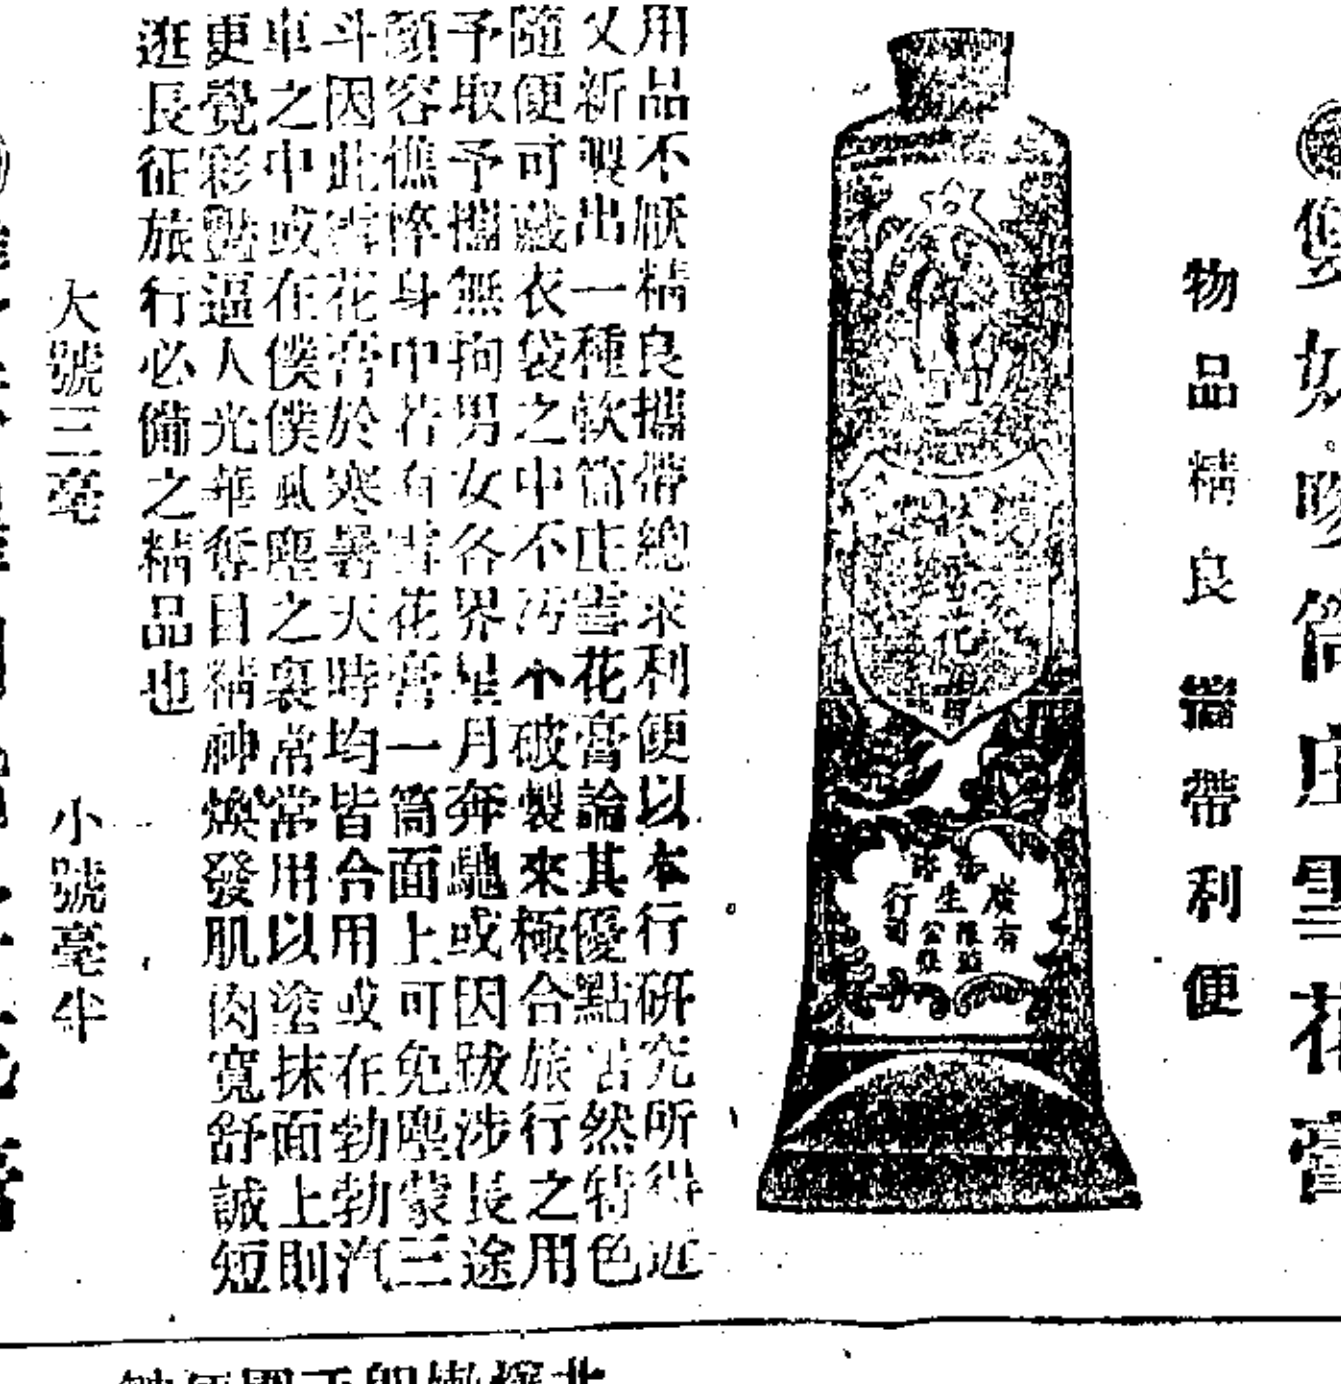 雙妹嘜筒庄雪花膏
物品精良 攜帶利便
用品不厭精良攜帶總求利便以本行研究所得近
又新製出一種軟筒庄雪花膏論其優點皆然特色
隨便可藏衣袋之中不污不破製來極合旅行之用
予取予攜無拘男女各界星月奔馳或因跋涉長途
顏容憔悴身中若有雪花膏一筒面上可免塵蒙三
斗因此雪花膏於寒暑天時均皆合用或在勃勃汽
車之中或在僕僕風塵之裏常常用以塗抹面上則
更覺彩艷逼人光華奪目精神煥發肌肉寬舒誠短
逛長征旅行必備之精品也
大號三毫 小號毫半
廣生行
有限公司
雪花膏